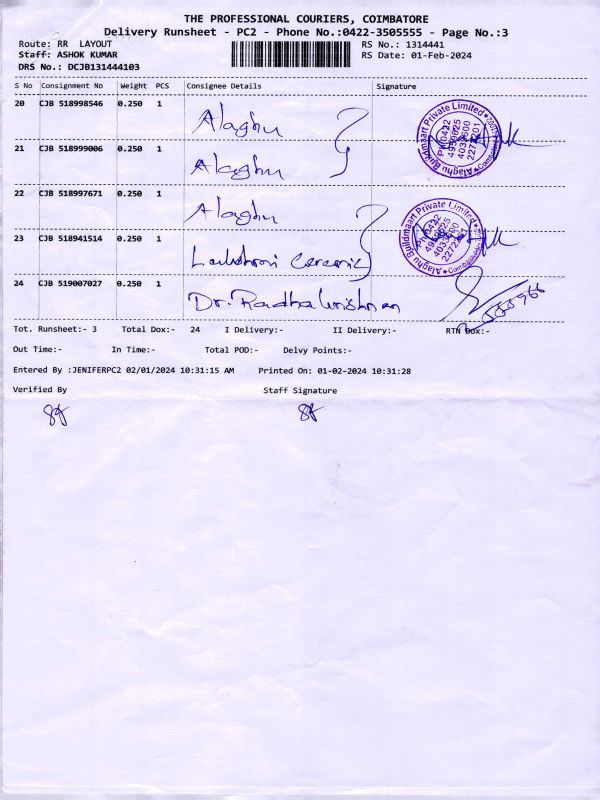 THE PROFESSIONAL COURIERS, COIMBATORE
Delivery Runsheet - PC2 - Phone No.:0422-3505555 - Page No.:3
Route: RR LAYOUT RS No.: 1314441
Staff: ASHOK KUMAR RS Date: 01-Feb-2024
DRS No.: DCJB131444103
S No Consignment No Weight PCS Consignee Details Signature
20 CJB 518998546 0.250 1 Alaghu
21 CJB 518999006 0.250 1 Alaghu
22 CJB 518997671 0.250 1 Alaghu
23 CJB 518941514 0.250 1 Lakshmi Ceramic
24 CJB 519007027 0.250 1 Dr. Radhakrishnan
Alaghu Buildmaart Private Limited
Alaghu Buildmaart Private Limited
Tot. Runsheet:- 3 Total Dox:- 24 I Delivery:- II Delivery:- RTN Dox:-
Out Time:- In Time:- Total POD:- Delvy Points:-
Entered By :JENIFERPC2 02/01/2024 10:31:15 AM Printed On: 01-02-2024 10:31:28
Verified By Staff Signature